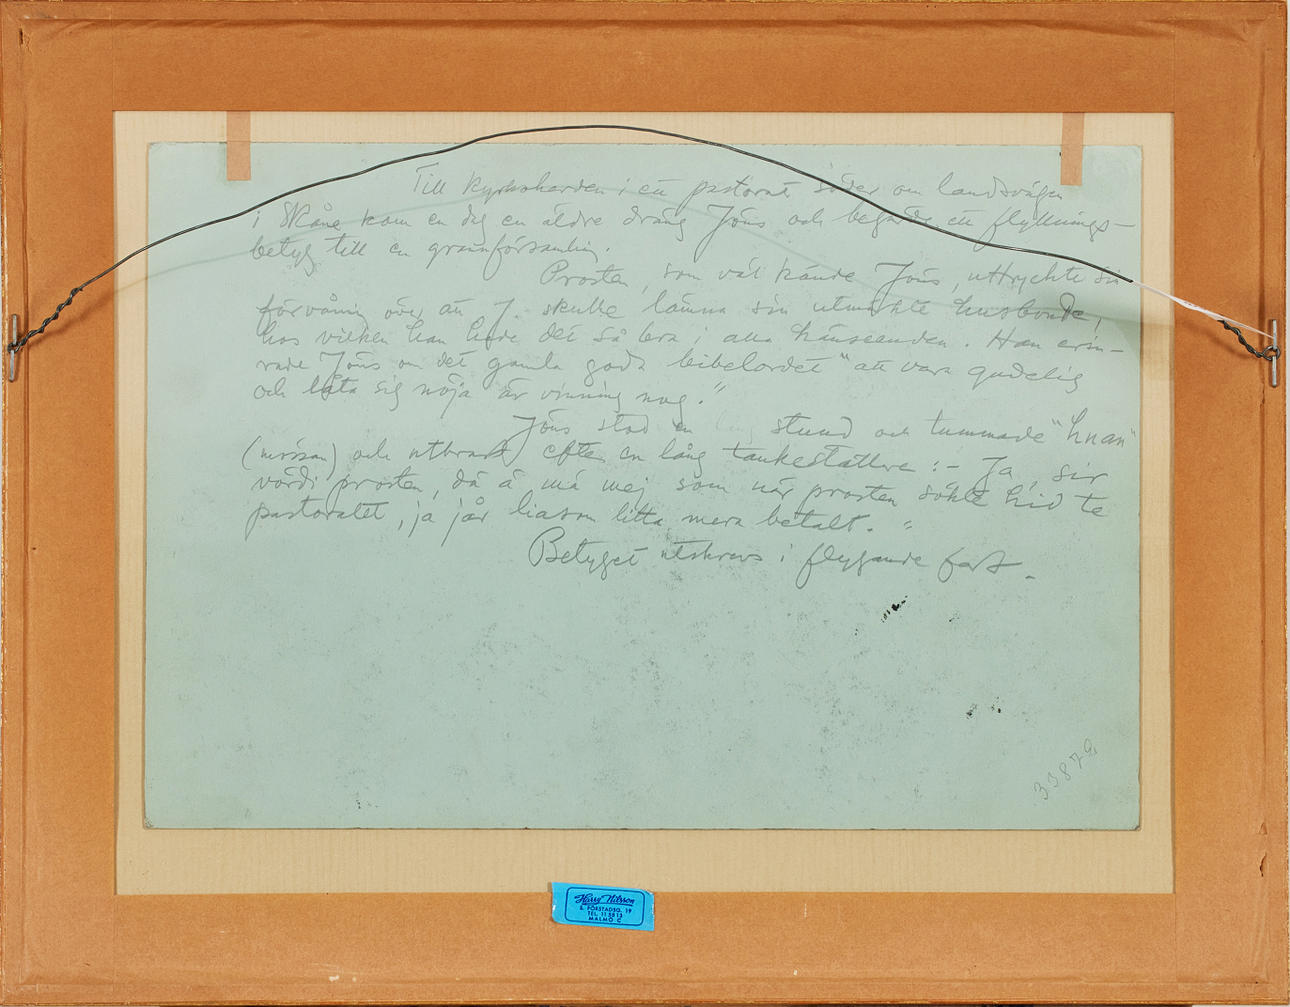 Till kyrkoherden i ett pastorat söder om landsvägen
i Skåne kom en dag en äldre dräng Jöns och begärde ett flyttnings-
betyg till en grannförsamling.
Prosten, som väl kände Jöns, uttryckte sin
förvåning över att J. skulle lämna sin utmärkte husbonde,
hos vilken han hade det så bra i alla hänseenden. Han erin-
rade Jöns om det gamla goda bibelordet "att vara gudelig
och låta sig nöja är vinning nog."
Jöns stod en lång stund och tummade "huan"
(mössan) och utbrast efter en lång tankeställare :- Ja, sir
vördi prosten, då å må mej som när prosten sökte hid te
pastoratet, ja jår liasom litta mera betalt. "
Betyget utskrevs i flygande fart.
33879
Harry Nilsson
S. FÖRSTADSG. 19
TEL. 11 58 13
MALMÖ C